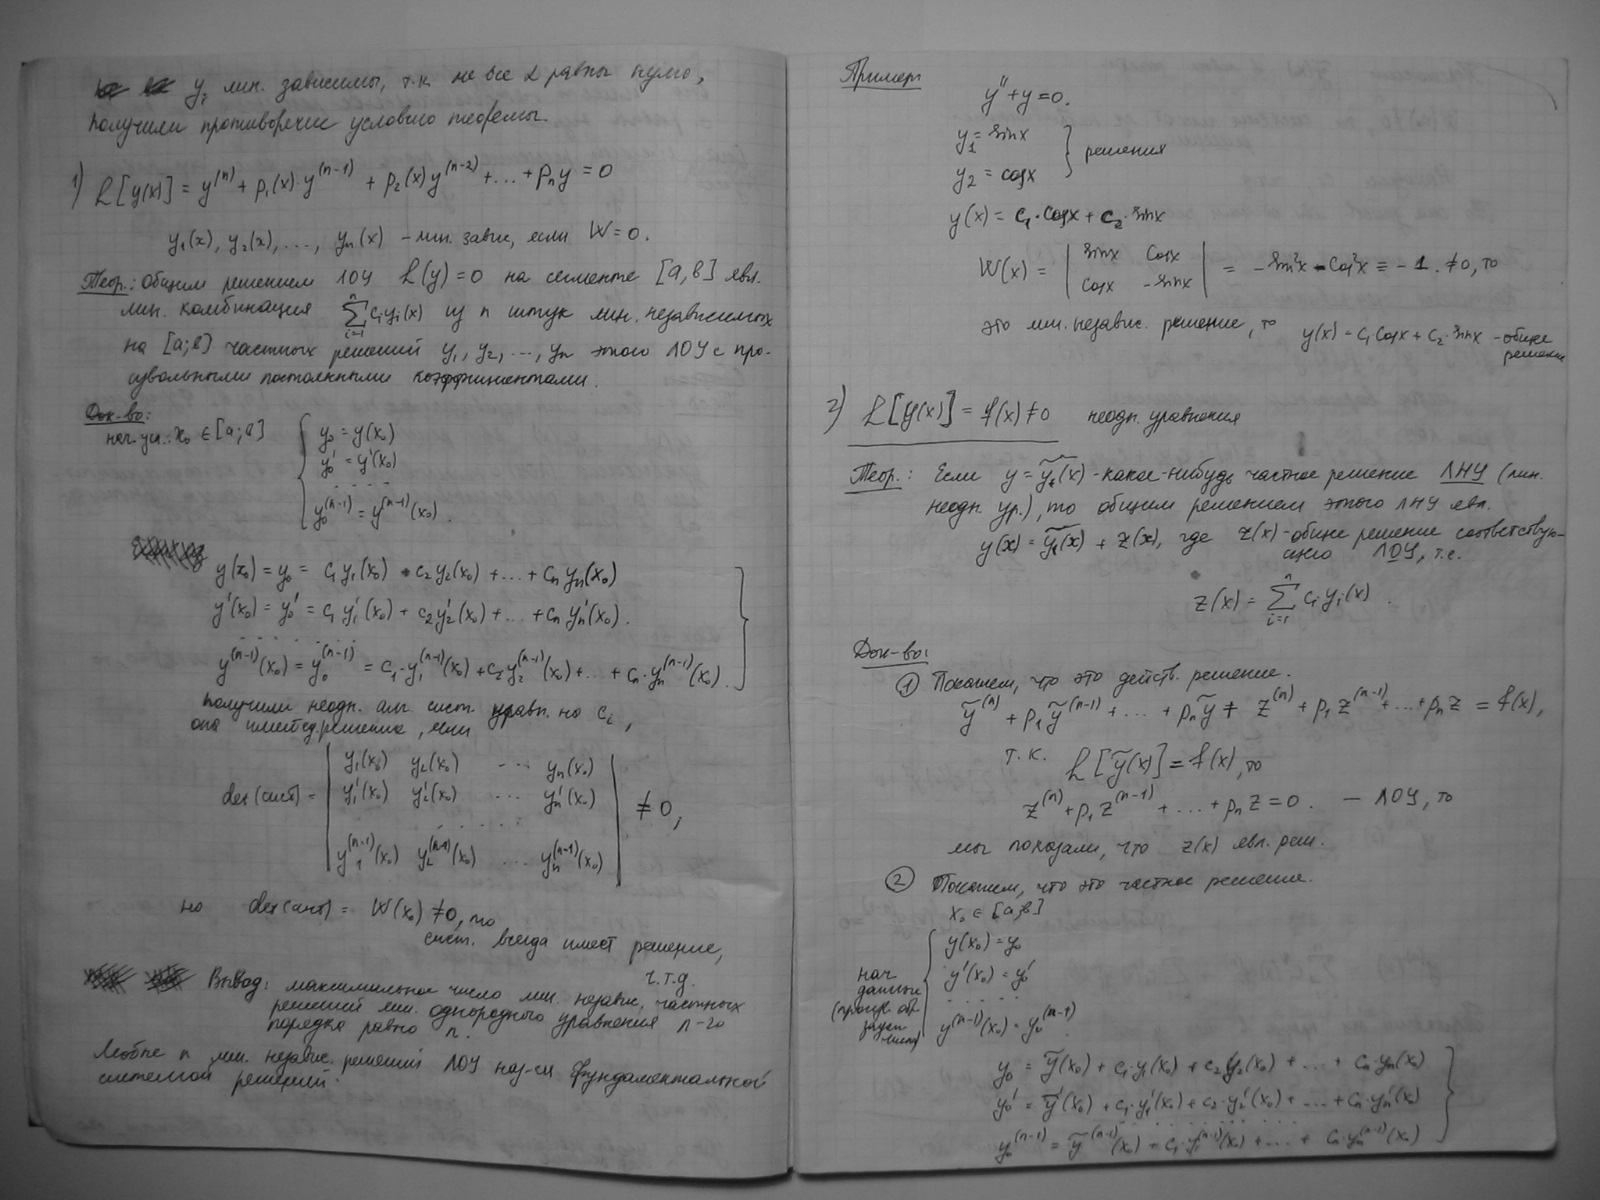 y_i лин. зависимы, т.к. не все α равны нулю,
получили противоречие условию теоремы.
1) L[y(x)] = y^(n) + p₁(x)·y^(n-1) + p₂(x)y^(n-2) + ... + pₙy = 0
y₁(x), y₂(x), ..., yₙ(x) – лин. завис, если W=0.
Теор.: Общим решением ЛОУ L(y)=0 на сегменте [a,в] явл.
лин. комбинация ∑_{i=1}^{n} cᵢyᵢ(x) из n штук лин. независимых
на [a;в] частных решений y₁, y₂, ..., yₙ этого ЛОУ с про-
извольными постоянными коэффициентами.
Док-во:
нач. усл.: x₀ ∈ [a;в]
y₀ = y(x₀)
y₀' = y'(x₀)
. . . . .
y₀^(n-1) = y^(n-1)(x₀).
y(x₀) = y₀ = c₁y₁(x₀) + c₂y₂(x₀) + ... + cₙyₙ(x₀)
y'(x₀) = y₀' = c₁y₁'(x₀) + c₂y₂'(x₀) + ... + cₙyₙ'(x₀).
. . . . . . .
y^(n-1)(x₀) = y₀^(n-1) = c₁·y₁^(n-1)(x₀) + c₂y₂^(n-1)(x₀) + ... + cₙ·yₙ^(n-1)(x₀).
получили неодн. алг. сист. уравн. по cᵢ,
она имеет ед. решение, если
det(сист) = | y₁(x₀) y₂(x₀) ... yₙ(x₀) |
| y₁'(x₀) y₂'(x₀) ... yₙ'(x₀) | ≠ 0,
. . . . . .
| y₁^(n-1)(x₀) y₂^(n-1)(x₀) ... yₙ^(n-1)(x₀) |
но det(сист) = W(x₀) ≠ 0, то
сист. всегда имеет решение,
ч.т.д.
Вывод: максимальное число лин. независ. частных
решений лин. однородного уравнения n-го
порядка равно n.
Любые n лин. независ. решений ЛОУ наз-ся фундаментальной
системой решений.
Пример:
y'' + y = 0.
y₁ = sinx
} решения
y₂ = cosx
y(x) = c₁·cosx + c₂·sinx
W(x) = | sinx cosx |
| cosx -sinx | = -sin²x - cos²x ≡ -1. ≠0, то
это лин. независ. решение, то y(x) = c₁cosx + c₂·sinx – общее
решение
2) L[y(x)] = f(x) ≠ 0 неодн. уравнения
Теор.: Если y = ỹ₁(x) - какое-нибудь частное решение ЛНУ (лин.
неодн. ур.), то общим решением этого ЛНУ явл.
y(x) = ỹ₁(x) + z(x), где z(x) - общее решение соответствую-
щего ЛОУ, т.е.
z(x) = ∑_{i=1}^{n} cᵢyᵢ(x).
Док-во:
① Покажем, что это действ. решение.
ỹ^(n) + p₁ỹ^(n-1) + ... + pₙỹ + z^(n) + p₁z^(n-1) + ... + pₙz = f(x),
т.к. L[ỹ(x)] = f(x), то
z^(n) + p₁z^(n-1) + ... + pₙz = 0. – ЛОУ, то
мы показали, что z(x) явл. реш.
② Покажем, что это частное решение.
x₀ ∈ [a,в]
y(x₀) = y₀
y'(x₀) = y₀'
. . . . .
y^(n-1)(x₀) = y₀^(n-1).
нач.
данные
y₀ = ỹ(x₀) + c₁·y₁(x₀) + c₂y₂(x₀) + ... + cₙyₙ(x₀)
y₀' = ỹ'(x₀) + c₁·y₁'(x₀) + c₂·y₂'(x₀) + ... + cₙ·yₙ'(x₀)
. . . . . . .
y₀^(n-1) = ỹ^(n-1)(x₀) + c₁·y₁^(n-1)(x₀) + ... + cₙyₙ^(n-1)(x₀)